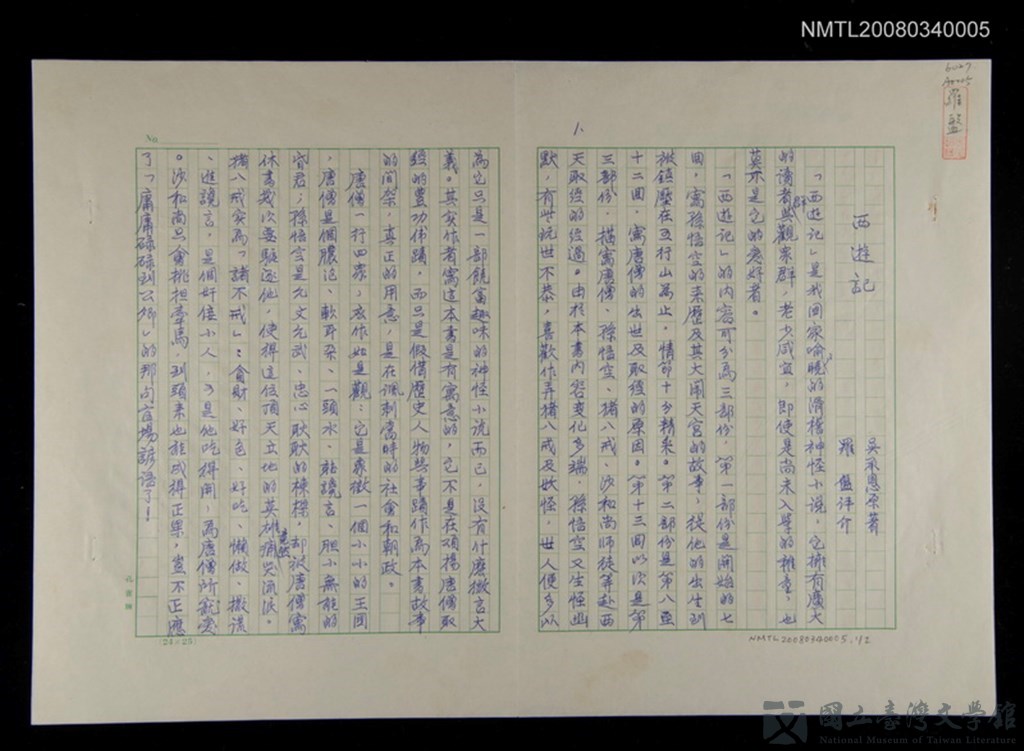 NMTL20080340005
羅盤
1.
西遊記
吳承恩原著
羅盤評介
「西遊記」是我國家喻戶曉的滑稽神怪小說,它擁有廣大
的讀者群與觀衆群,老少咸宜,即使是尚未入學的稚童,也
莫不是它的愛好者。
「西遊記」的內容可分爲三部份,第一部份是開始的七
回,寫孫悟空的來歷及其大鬧天宮的故事,從他的出生到
被鎮壓在五行山爲止,情節十分精采。第二部份是第八至
十二回,寫唐僧的出世及取經的原因。第十三回以次是第
三部份,描寫唐僧、孫悟空、猪八戒、沙和尚師徒等赴西
天取經的經過。由於本書內容變化多端,孫悟空又生性幽
默,有些玩世不恭,喜歡作弄猪八戒及妖怪,世人便多以
NMTL20080340005,1/2
No
爲它只是一部饒富趣味的神怪小說而已,沒有什麼微言大
義。其實作者寫這本書是有寓意的,它不是在頌揚唐僧取
經的豐功偉蹟,而只是假借歷史人物與事蹟作爲本書故事
的間架,真正的用意,是在諷刺當時的社會和朝政。
唐僧一行四衆,應作如是觀:它是象徵一個小小的王國
,唐僧是個膿包、軟耳朶、一頭水、聽讒言、胆小無能的
昏君;孫悟空是允文允武、忠心耿耿的棟樑,却被唐僧寫
休書幾次要驅逐他,使得這位頂天立地的英雄竟然痛哭流涕。
猪八戒實爲「諸不戒」:貪財、好色、好吃、懶做、撒謊
、進讒言,是個奸佞小人,可是他吃得開,爲唐僧所寵愛
。沙和尚只會挑担牽馬,到頭來也能成得正果,豈不正應
了「庸庸碌碌到公卿」的那句官場諺語了!
(24×25)
國立臺灣文學館
National Museum of Taiwan Literature